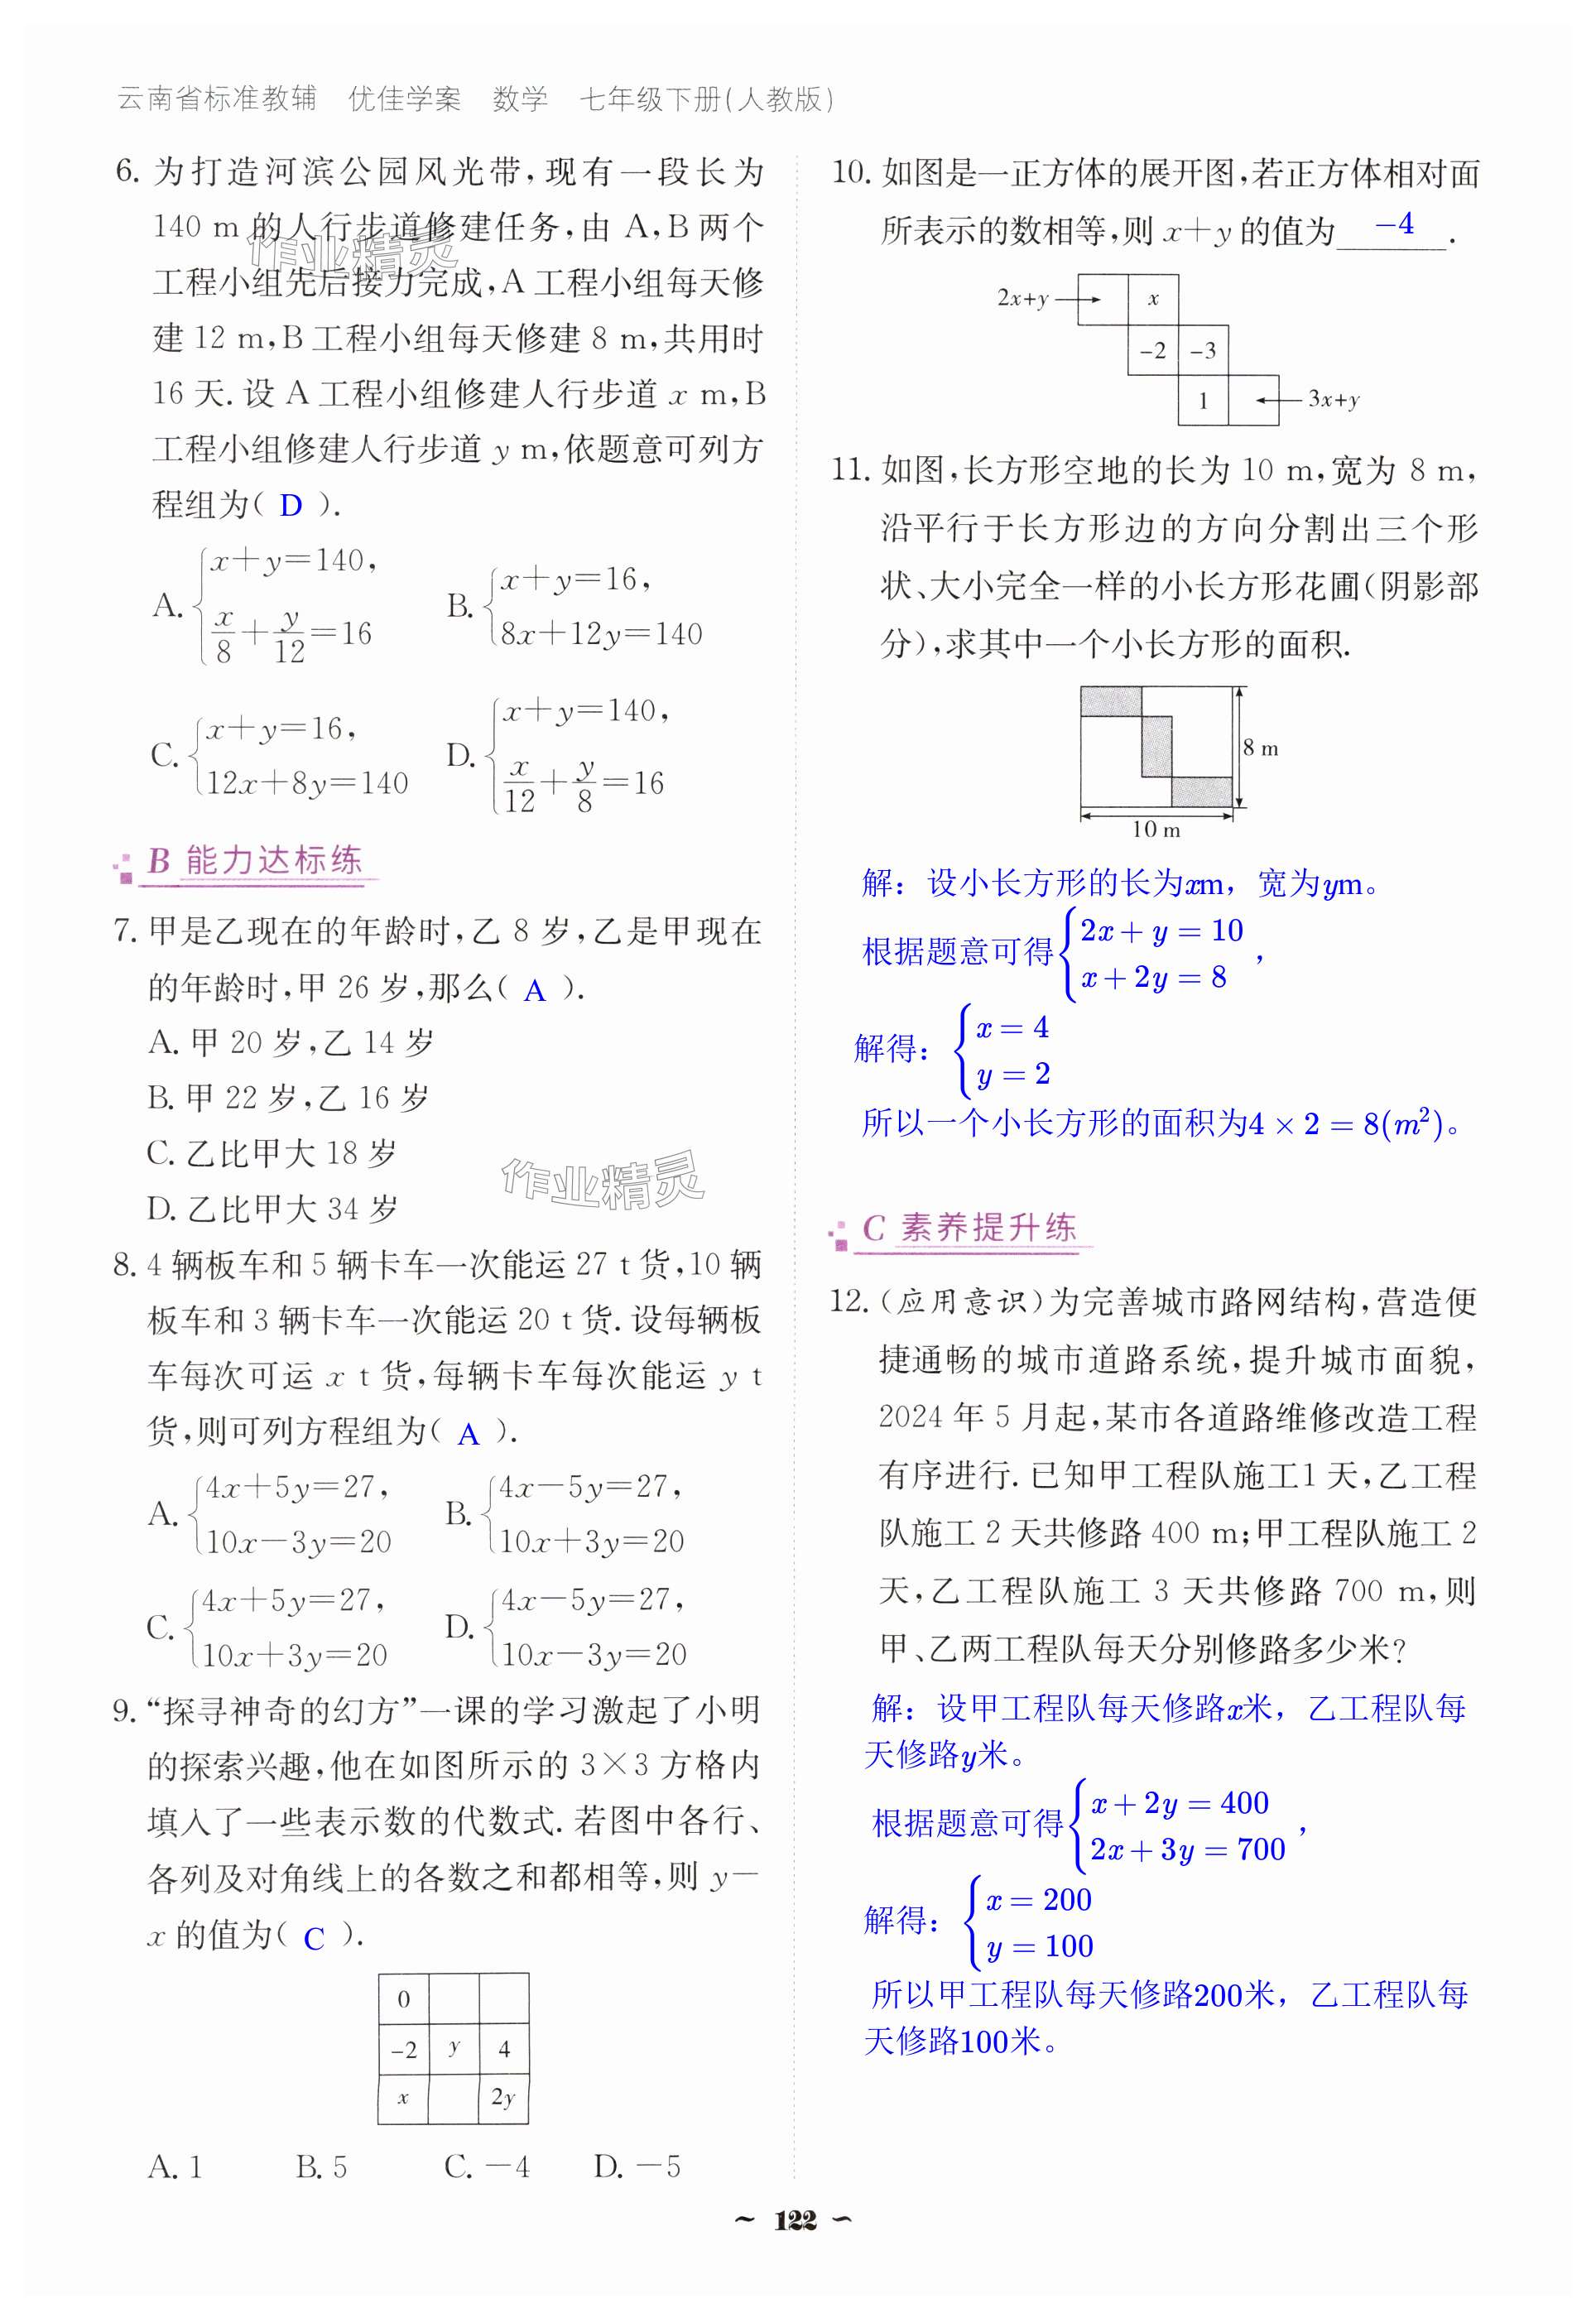 云南省标准教辅 优佳学案 数学 七年级下册(人教版)
6. 为打造河滨公园风光带,现有一段长为
140 m 的人行步道修建任务,由 A,B 两个
工程小组先后接力完成,A 工程小组每天修
建 12 m,B 工程小组每天修建 8 m,共用时
16 天. 设 A 工程小组修建人行步道 x m,B
工程小组修建人行步道 y m,依题意可列方
程组为( D ).
A. {x+y=140, x/8+y/12=16
B. {x+y=16, 8x+12y=140
C. {x+y=16, 12x+8y=140
D. {x+y=140, x/12+y/8=16
B 能力达标练
7. 甲是乙现在的年龄时,乙 8 岁,乙是甲现在
的年龄时,甲 26 岁,那么( A ).
A. 甲 20 岁,乙 14 岁
B. 甲 22 岁,乙 16 岁
C. 乙比甲大 18 岁
D. 乙比甲大 34 岁
8. 4 辆板车和 5 辆卡车一次能运 27 t 货,10 辆
板车和 3 辆卡车一次能运 20 t 货. 设每辆板
车每次可运 x t 货,每辆卡车每次能运 y t
货,则可列方程组为( A ).
A. {4x+5y=27, 10x-3y=20
B. {4x-5y=27, 10x+3y=20
C. {4x+5y=27, 10x+3y=20
D. {4x-5y=27, 10x-3y=20
9. “探寻神奇的幻方”一课的学习激起了小明
的探索兴趣,他在如图所示的 3×3 方格内
填入了一些表示数的代数式. 若图中各行、
各列及对角线上的各数之和都相等,则 y-
x 的值为( C ).
0
-2 y 4
x 2y
A. 1 B. 5 C. -4 D. -5
10. 如图是一正方体的展开图,若正方体相对面
所表示的数相等,则 x+y 的值为 -4 .
2x+y x
-2 -3
1 3x+y
11. 如图,长方形空地的长为 10 m,宽为 8 m,
沿平行于长方形边的方向分割出三个形
状、大小完全一样的小长方形花圃(阴影部
分),求其中一个小长方形的面积.
8 m
10 m
解：设小长方形的长为xm，宽为ym。
根据题意可得{2x + y = 10 x + 2y = 8 ，
解得：{x = 4 y = 2
所以一个小长方形的面积为4 × 2 = 8(m²)。
C 素养提升练
12. (应用意识)为完善城市路网结构,营造便
捷通畅的城市道路系统,提升城市面貌,
2024 年 5 月起,某市各道路维修改造工程
有序进行. 已知甲工程队施工1 天,乙工程
队施工 2 天共修路 400 m;甲工程队施工 2
天,乙工程队施工 3 天共修路 700 m,则
甲、乙两工程队每天分别修路多少米?
解：设甲工程队每天修路x米，乙工程队每
天修路y米。
根据题意可得{x + 2y = 400 2x + 3y = 700 ，
解得：{x = 200 y = 100
所以甲工程队每天修路200米，乙工程队每
天修路100米。
~ 122 ~
作业精灵
作业精灵